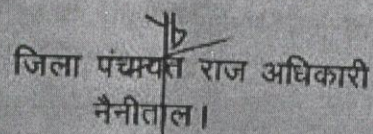 जिला पंचायत राज अधिकारी
नैनीताल।